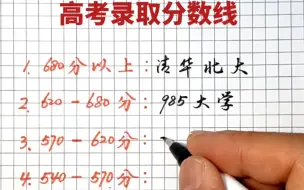 高考录取分数线
1. 680分以上：清华北大
2. 620-680分：985大学
3. 570-620分：
4. 540-570分：